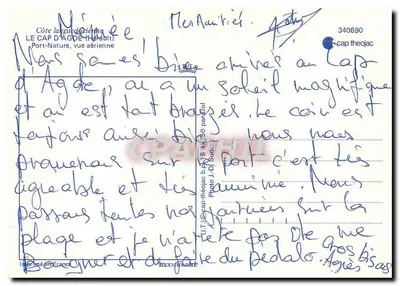 Mémée Mes Amitiés
Côte languedocienne
LE CAP D'AGDE (Hérault)
Port-Nature, vue aérienne
340690
cap theojac
Nous sommes bien arrivés au Cap
d'Agde, on a un soleil magnifique
et on est tout bronzés. Le coin est
toujours aussi bien nous nous
promenons sur le port c'est très
agréable et très animé. Nous
passons toutes nos journées sur la
plage et je n'arrête pas de me
baigner et de faire du pédalo.
Gros bisous
Agnès